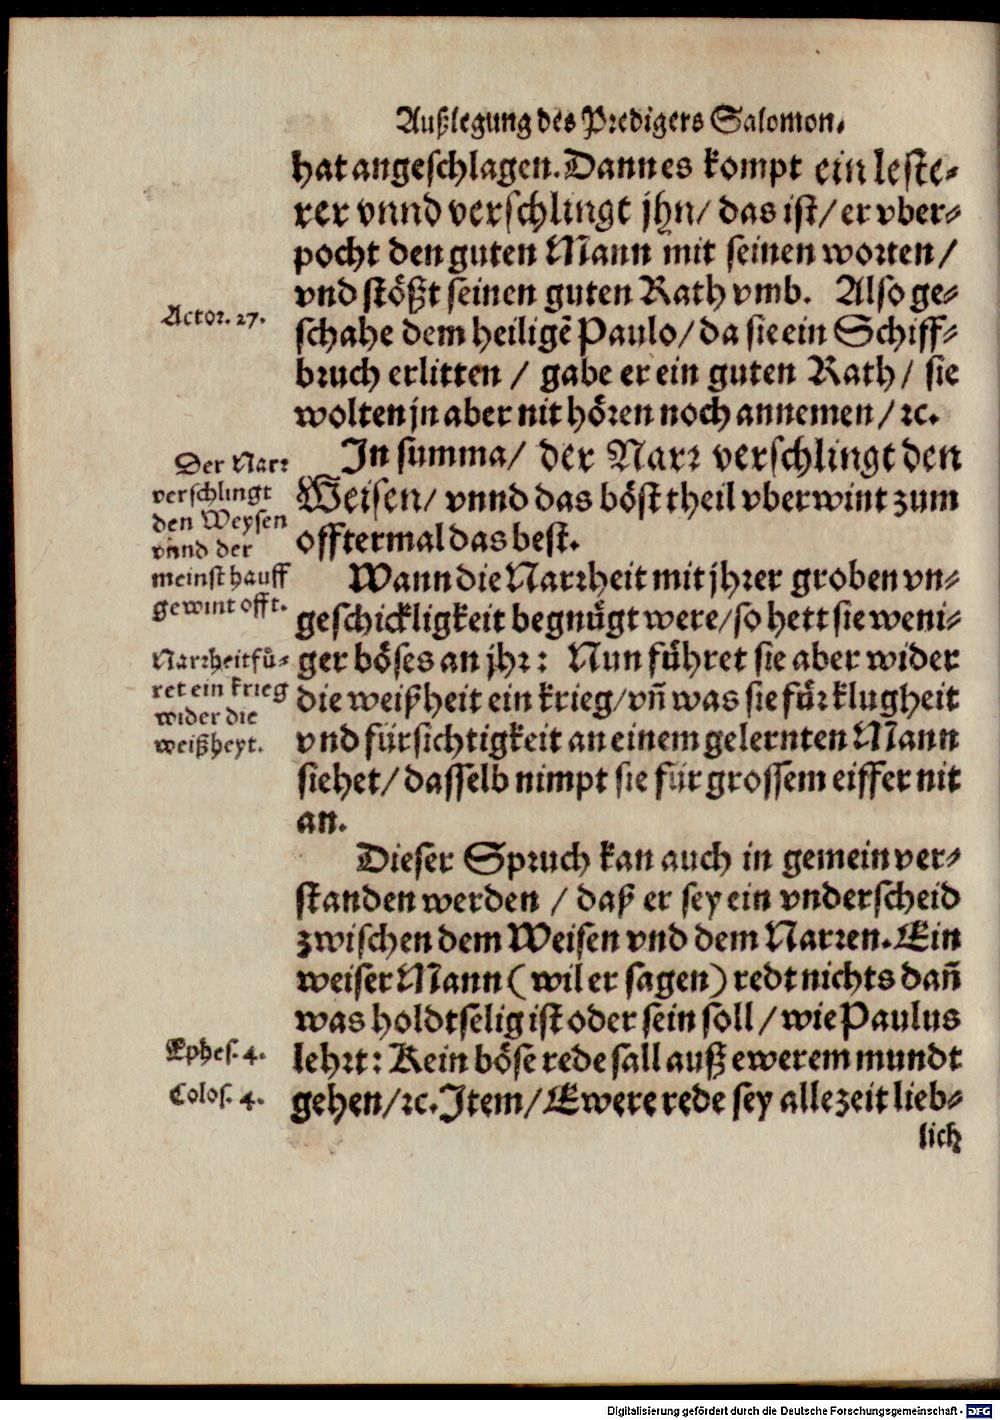 Außlegung des Predigers Salomon.
hat angeschlagen. Dann es kompt ein leste-
rer vnnd verschlingt jhn/ das ist/ er vber-
pocht den guten Mann mit seinen worten/
vnd stößt seinen guten Rath vmb. Also ge-
Actor. 27.
schahe dem heiligẽ Paulo/ da sie ein Schiff-
bruch erlitten / gabe er ein guten Rath/ sie
wolten jn aber nit hören noch annemen/ ꝛc.
Der Narr
verschlingt
den Weysen
vnnd der
meinst hauff
gewint offt.
In summa/ der Narr verschlingt den
Weisen/ vnnd das böst theil vberwint zum
offtermal das best.
Wann die Narrheit mit jhrer groben vn-
geschickligkeit begnuͤgt were/ so hett sie weni-
Narrheit fuͤ-
ret ein krieg
wider die
weißheyt.
ger böses an jhr: Nun fuͤhret sie aber wider
die weißheit ein krieg/ vñ was sie fuͤr klugheit
vnd fürsichtigkeit an einem gelernten Mann
siehet/ dasselb nimpt sie für grossem eiffer nit
an.
Dieser Spruch kan auch in gemein ver-
standen werden / daß er sey ein vnderscheid
zwischen dem Weisen vnd dem Narren. Ein
weiser Mann (wil er sagen) redt nichts dañ
was holdtselig ist oder sein soll / wie Paulus
Ephes. 4.
lehrt: Kein böse rede sall auß ewerem mundt
Colos. 4.
gehen/ ꝛc. Item/ Ewere rede sey allezeit lieb-
lich
Digitalisierung gefördert durch die Deutsche Forschungsgemeinschaft - DFG